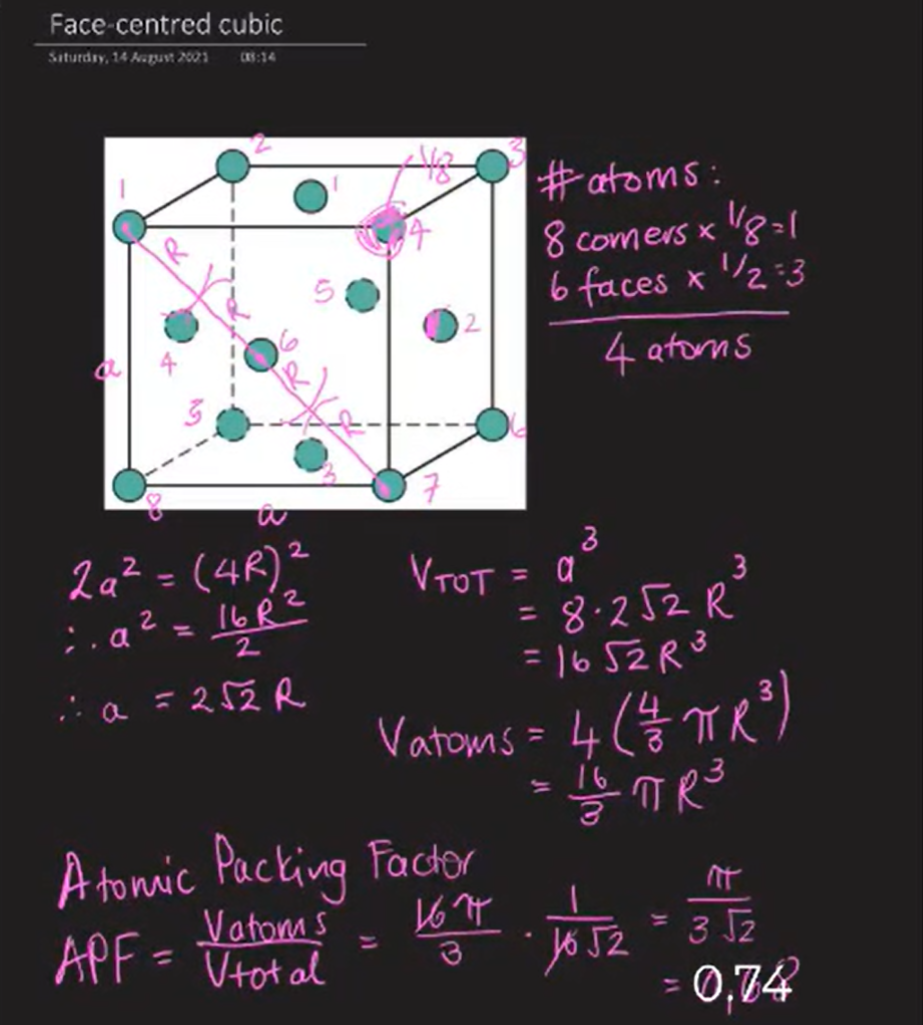 Face-centred cubic
Saturday, 14 August 2021 08:14
2
1/8
3
1
1
4
R
5
2
R
4
6
a
R
5
R
6
3
7
8
a
# atoms:
8 corners x 1/8 = 1
6 faces x 1/2 = 3
4 atoms
2a² = (4R)²
∴ a² = 16R²/2
∴ a = 2√2 R
VTOT = a³
= 8·2√2 R³
= 16√2 R³
Vatoms = 4(4/3 πR³)
= 16/3 πR³
Atomic Packing Factor
APF = Vatoms/Vtotal = 16π/3 · 1/16√2 = π/3√2
= 0,74